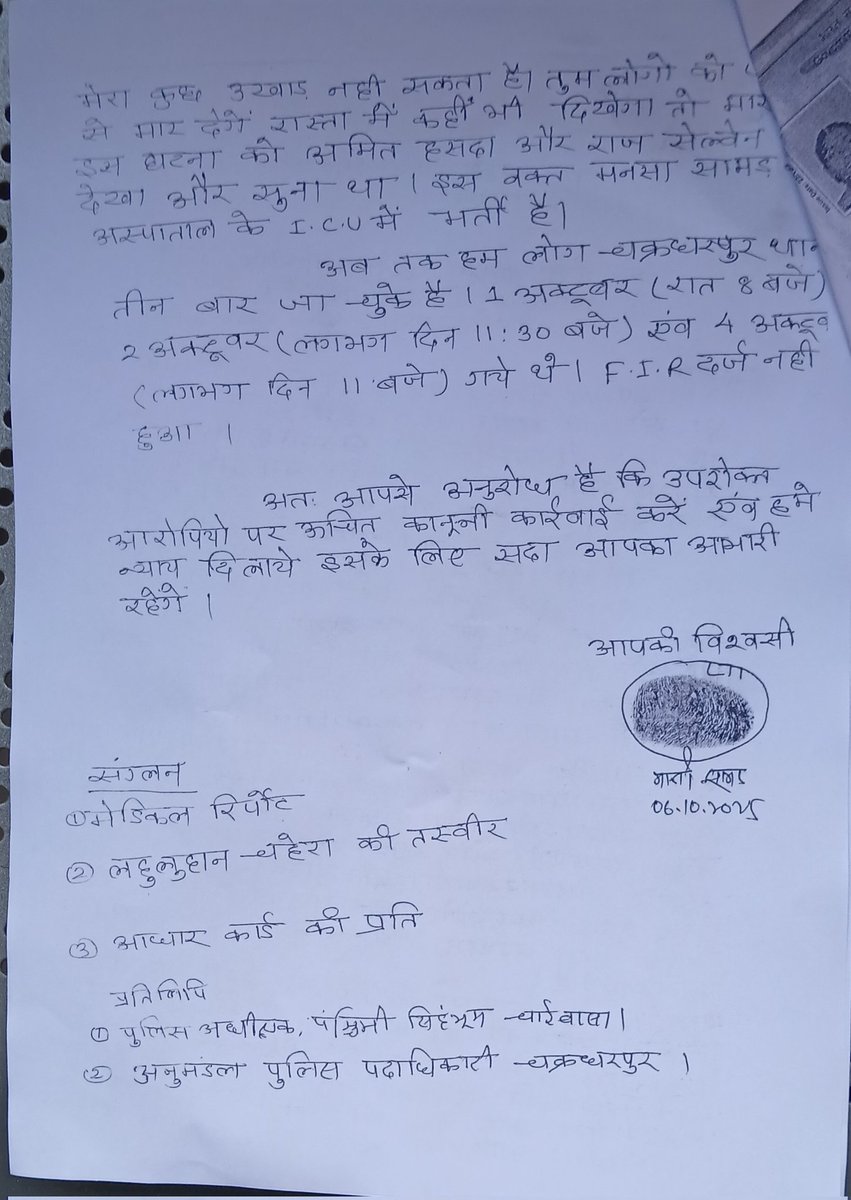 मेरा कुछ उखाड़ नही सकता है। तुम लोगो को
से मार देगें रास्ता में कहीं भी दिखेगा तो मार
इस घटना को अमित हसदा और राज सेल्वेन
देखा और सुना था। इस वक्त मनसा सामड
अस्पाताल के I.C.U में भर्ती है।
अब तक हम लोग चक्रधरपुर थान
तीन बार जा चुके है। 1 अक्टूबर (रात 8 बजे)
2 अक्टूवर (लगभग दिन 11:30 बजे) एंव 4 अक्टूव
(लगभग दिन 11 बजे) गये थे। F.I.R दर्ज नही
हुआ ।
अतः आपसे अनुरोध है कि उपरोक्त
आरोपियो पर उचित कानूनी कार्रवाई करें एंव हमे
न्याय दिलाये इसके लिए सदा आपका आभारी
रहेगें ।
आपकी विश्वसी
06.10.2025
संग्लन
① मेडिकल रिर्पोट
② लहुलुहान चेहेरा की तस्वीर
③ आधार कार्ड की प्रति
प्रतिलिपि
① पुलिस अधीक्षक, पंश्चिमी सिहंभूम चाईबासा।
② अनुमंडल पुलिस पदाधिकारी चक्रधरपुर ।